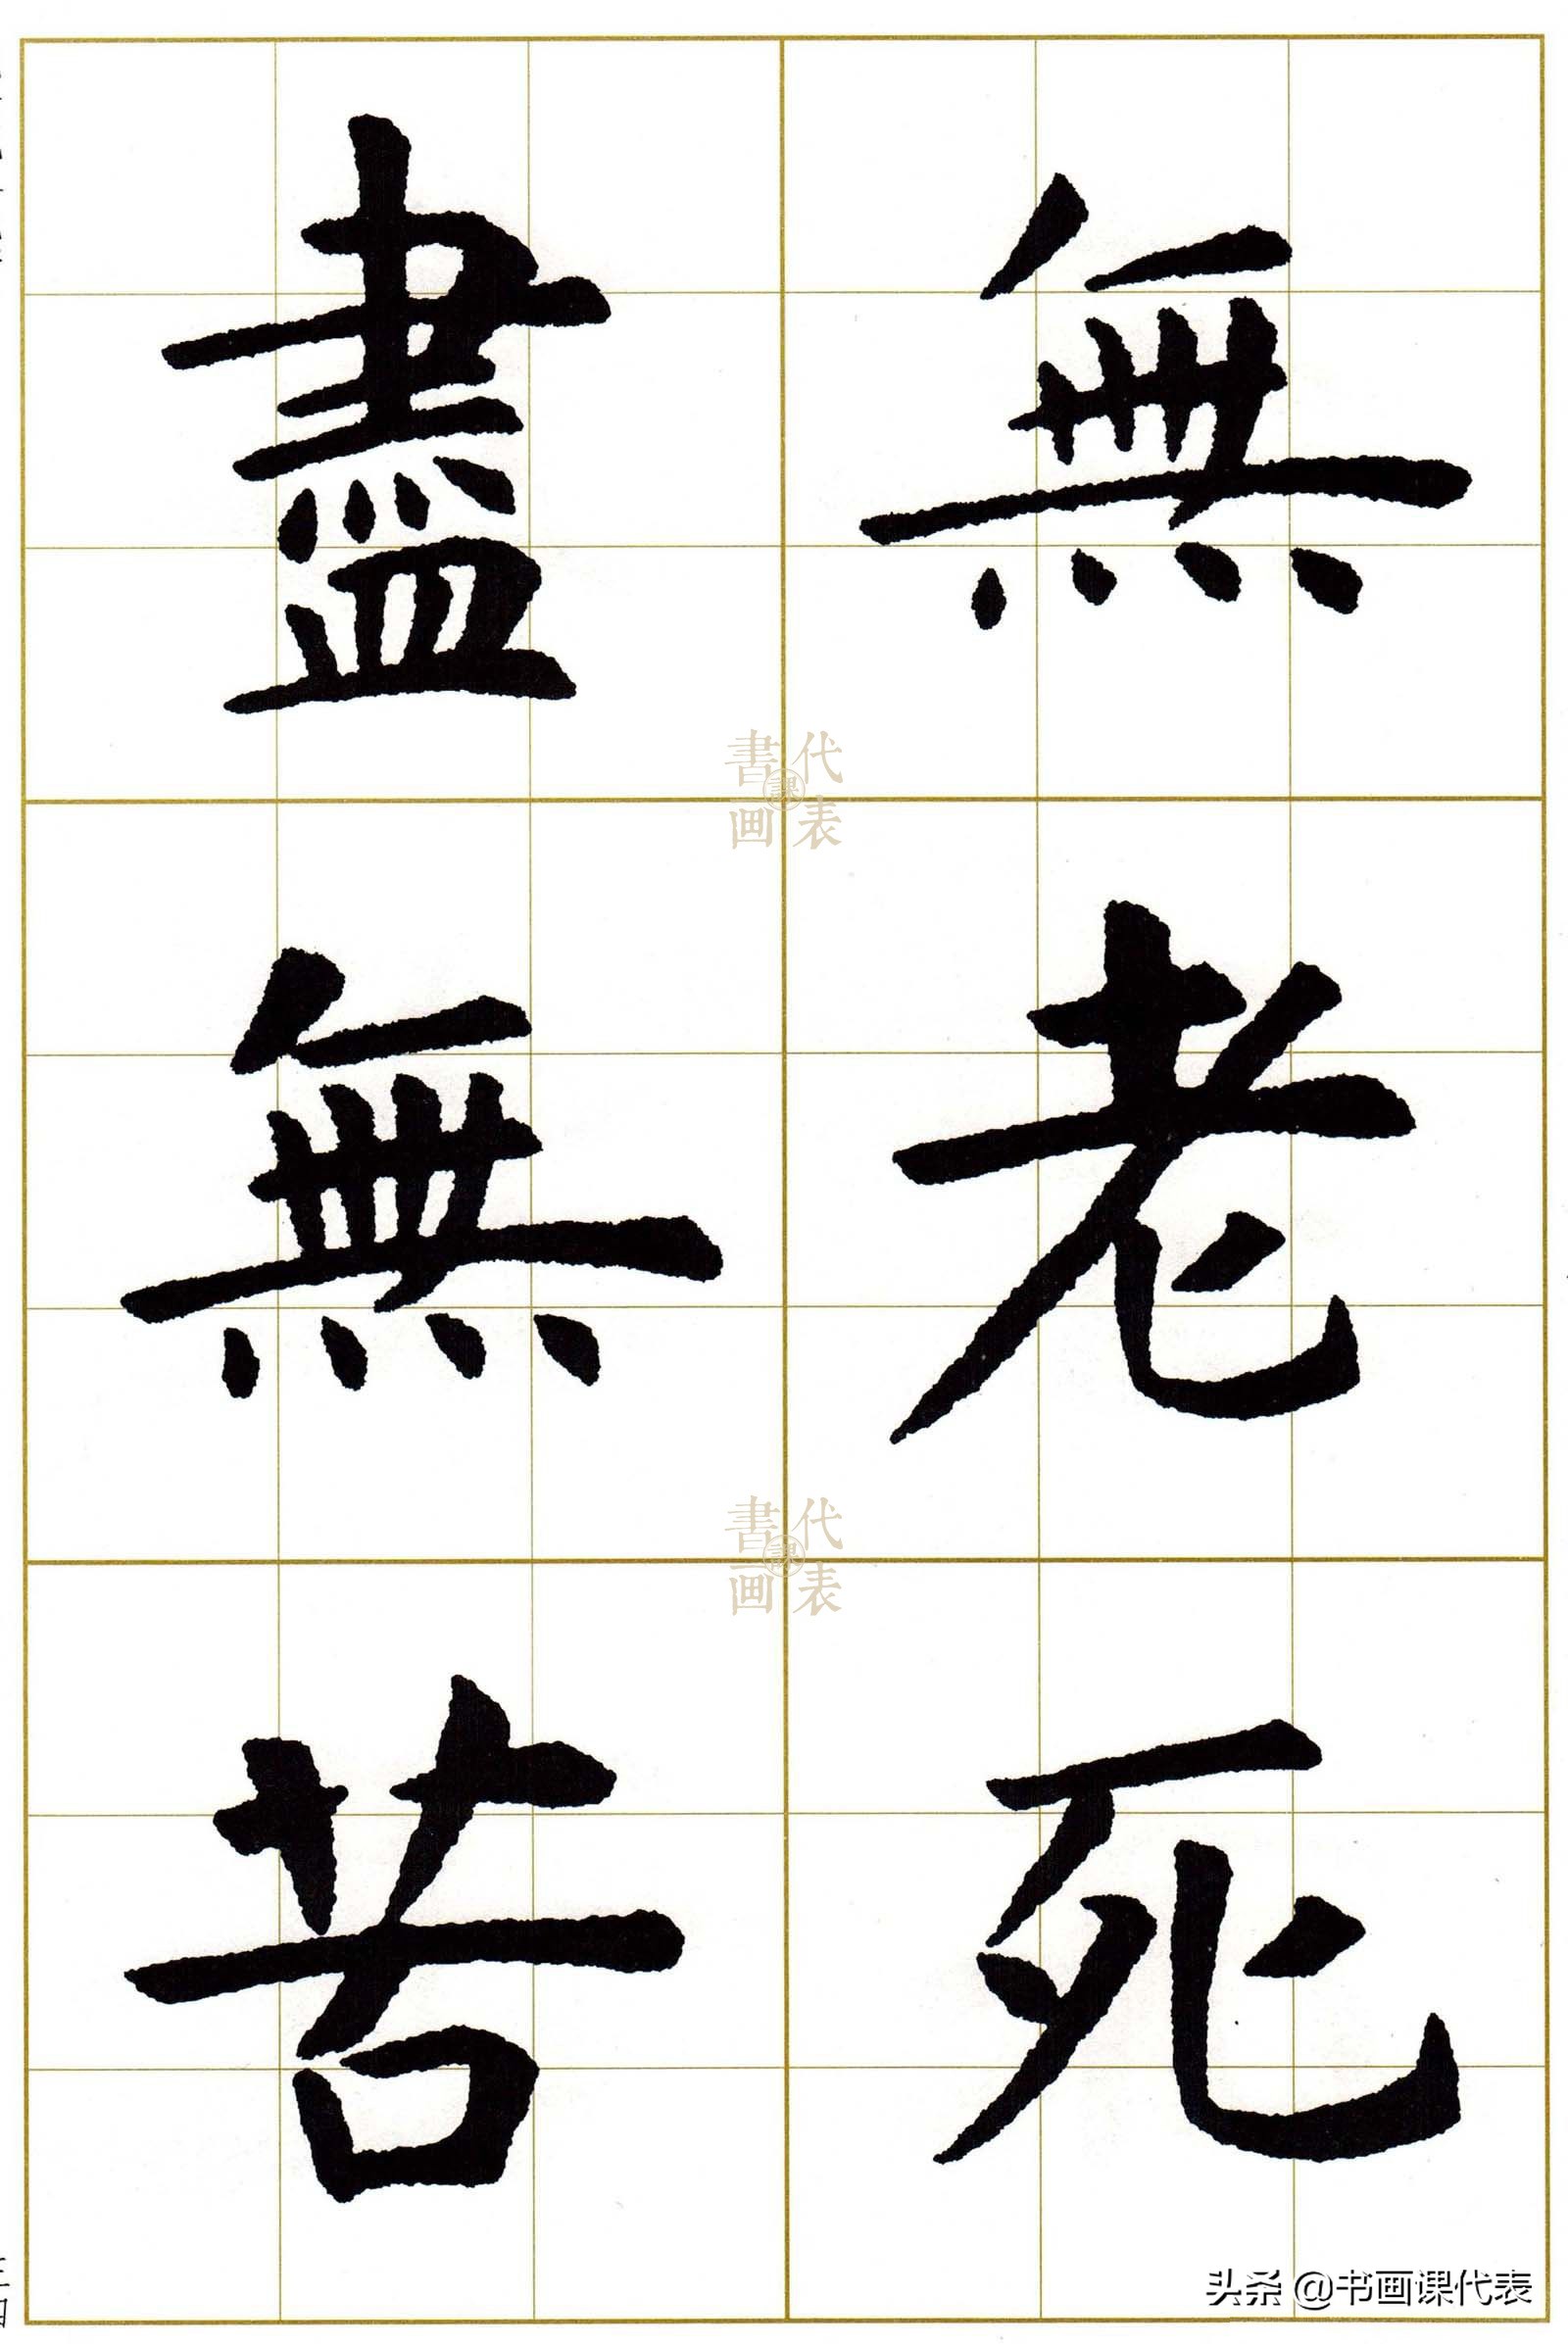 無老死
盡無苦
代表課書画
代表課書画
头条 @书画课代表